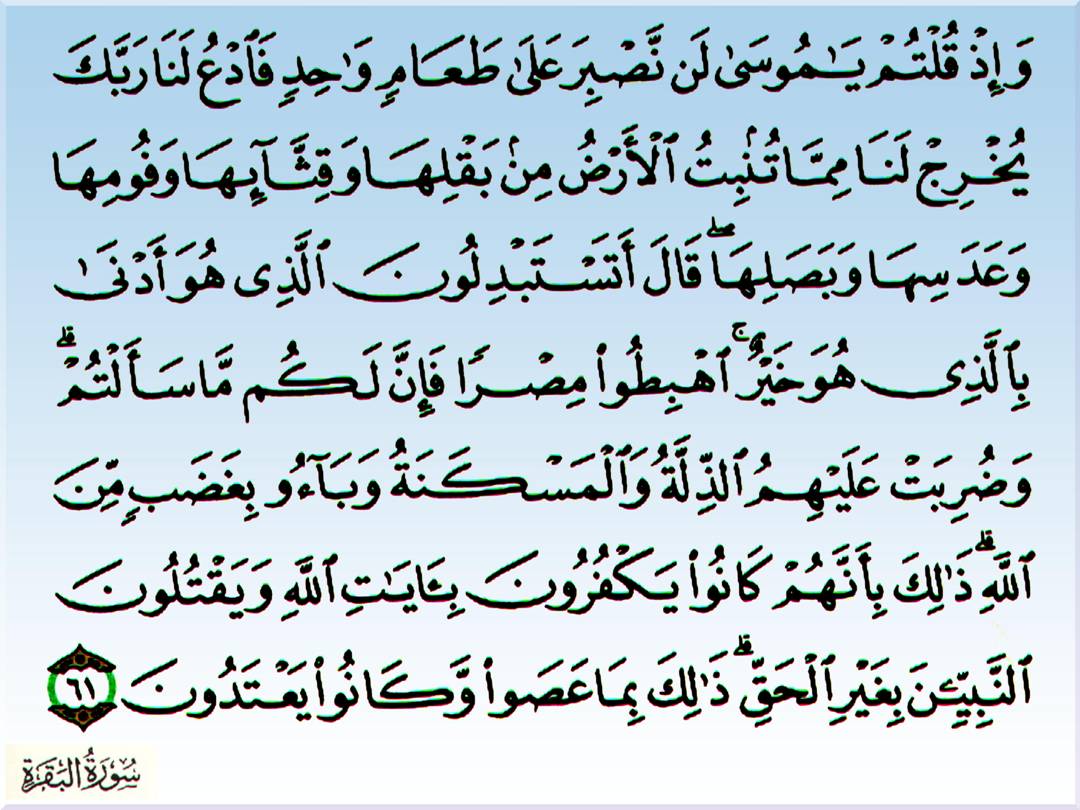 وَإِذْ قُلْتُمْ يَـٰمُوسَىٰ لَن نَّصْبِرَ عَلَىٰ طَعَامٍ وَٰحِدٍ فَٱدْعُ لَنَا رَبَّكَ
يُخْرِجْ لَنَا مِمَّا تُنۢبِتُ ٱلْأَرْضُ مِنۢ بَقْلِهَا وَقِثَّآئِهَا وَفُومِهَا
وَعَدَسِهَا وَبَصَلِهَا ۖ قَالَ أَتَسْتَبْدِلُونَ ٱلَّذِى هُوَ أَدْنَىٰ
بِٱلَّذِى هُوَ خَيْرٌ ۚ ٱهْبِطُوا۟ مِصْرًا فَإِنَّ لَكُم مَّا سَأَلْتُمْ ۗ
وَضُرِبَتْ عَلَيْهِمُ ٱلذِّلَّةُ وَٱلْمَسْكَنَةُ وَبَآءُو بِغَضَبٍ مِّنَ
ٱللَّهِ ۗ ذَٰلِكَ بِأَنَّهُمْ كَانُوا۟ يَكْفُرُونَ بِـَٔايَـٰتِ ٱللَّهِ وَيَقْتُلُونَ
ٱلنَّبِيِّـۧنَ بِغَيْرِ ٱلْحَقِّ ۗ ذَٰلِكَ بِمَا عَصَوا۟ وَّكَانُوا۟ يَعْتَدُونَ ٦١
سُورَةُ البَقَرَةِ